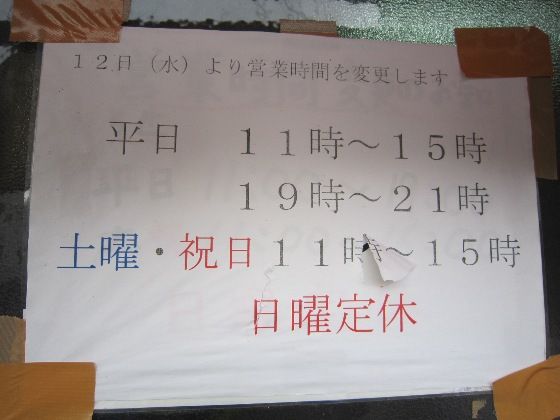 12日（水）より営業時間を変更します
平日　11時～15時
19時～21時
土曜・祝日11時～15時
日曜定休